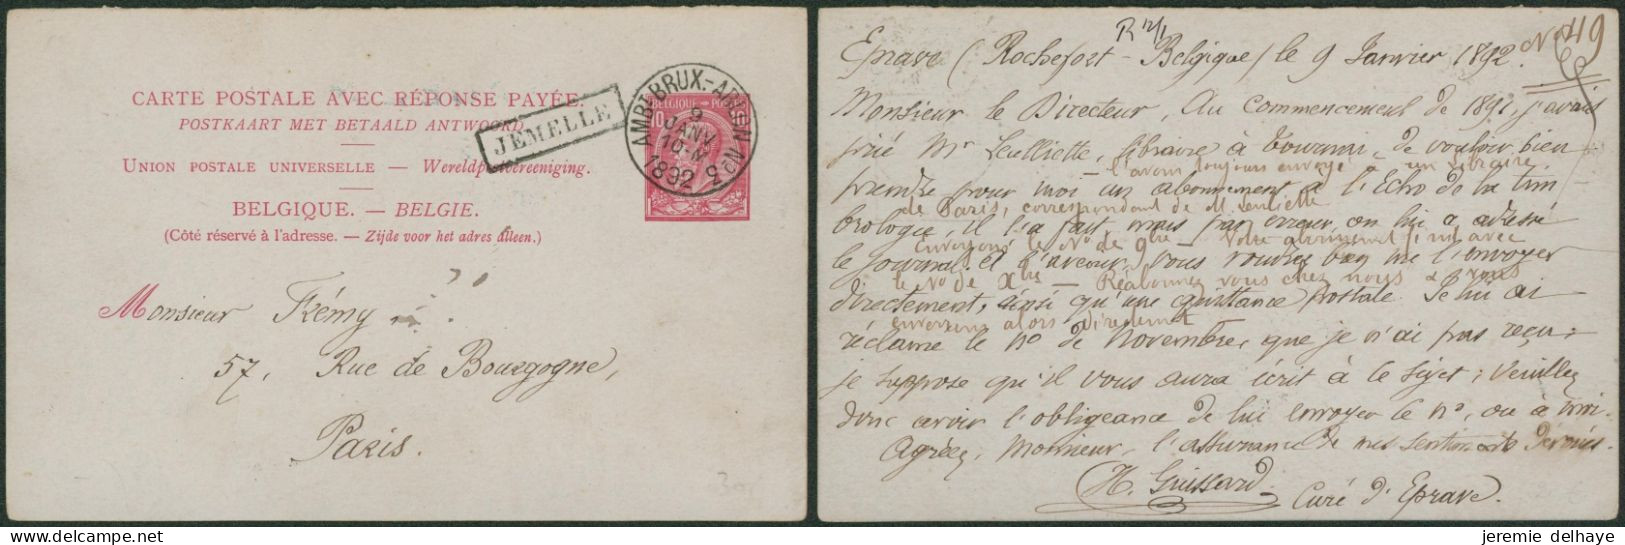 CARTE POSTALE AVEC RÉPONSE PAYÉE.
POSTKAART MET BETAALD ANTWOORD.
UNION POSTALE UNIVERSELLE — Wereldpostvereeniging.
BELGIQUE. — BELGIE.
(Côté réservé à l'adresse. — Zijde voor het adres alleen.)
JEMELLE
AMBT BRUX.-ARLON
9
JANV
10-M
1892
BELGIQUE POSTES
10
Monsieur Frémy
57, Rue de Bourgogne,
Paris.
R 12/1
No 419
Eprave (Rochefort - Belgique) le 9 Janvier 1892.
Monsieur le Directeur, Au commencement de 1891, j'avais
prié Mr Leulliette, libraire à Tournai, de vouloir bien
l'avons toujours envoyé à un libraire
prendre pour moi un abonnement à l'Echo de la tim
de Paris, correspondant de M. Leulliette
brologie, il l'a fait, mais par erreur, on lui a adressé
Envoyons le No de 9bre — Votre abonnement finit avec
le journal. et l'avenir, vous voudrez bien me l'envoyer
le No de Xbre — Réabonnez vous chez nous & vous
directement, ainsi qu'une quittance postale. Je lui ai
enverrons alors directement
réclamé le no de Novembre, que je n'ai pas reçu;
je suppose qu'il vous aura écrit à ce sujet; Veuillez
donc avoir l'obligeance de lui envoyer ce no, ou à moi.
Agréez, Monsieur, l'assurance de mes sentiments
H. Guissard
Curé d'Eprave.
jeremie delhaye